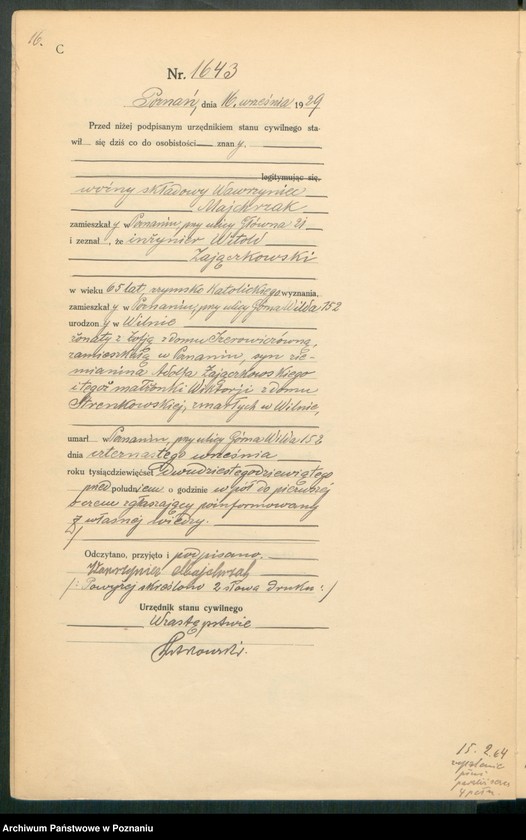 16.
C
Nr. 1643
Poznań, dnia 16. września 1929
Przed niżej podpisanym urzędnikiem stanu cywilnego sta-
wił się dziś co do osobistości znany.
legitymując się,
woźny składowy Wawrzyniec
Majchrzak
zamieszkały w Poznaniu, przy ulicy Główna 21
i zeznał, że inżynier Witold
Zajączkowski
w wieku 65 lat, rzymsko katolickiego wyznania,
zamieszkały w Poznaniu, przy ulicy Górna Wilda 152
urodzony w Wilnie
żonaty z Zofją z domu
zamieszkałą w Poznaniu, syn zie-
mianina Adolfa Zajączkowskiego
i tegoż małżonki Wiktorji z domu
Strenkowskiej, zmarłych w Wilnie,
umarł w Poznaniu, przy ulicy Górna Wilda 152
dnia czternastego września
roku tysiąćdziewięćset dwudziestegodziewiątego
przed południem o godzinie w pół do pierwszej
o czem zgłaszający poinformowany
z własnej wiedzy.
Odczytano, przyjęto i podpisano.
Wawrzyniec Majchrzak
/: Powyżej skreślono 2 słowa druku :/
Urzędnik stanu cywilnego
W zastępstwie
15. 2. 64
Archiwum Państwowe w Poznaniu